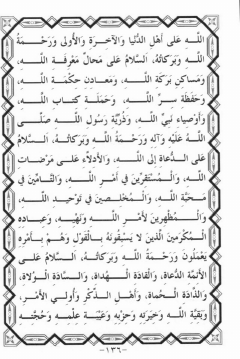 اللّٰه عَلى أَهْلِ الدُّنْيا وَالآخِرَةِ وَالأُولى وَرَحْمَـةُ
اللّٰهِ وَبَرَكاتُهُ، اَلسَّلامُ عَلى مَحالِّ مَعْرِفَةِ اللّٰـهِ،
وَمَساكِنِ بَرَكَةِ اللّٰـهِ، وَمَعـادِنِ حِكْمَـةِ اللّٰـهِ،
وَحَفَظَةِ سِـرِّ اللّٰـهِ، وَحَمَلَـةِ كِتـابِ اللّٰـهِ،
وَأَوْصِياءِ نَبِيِّ اللّٰـهِ، وَذُرِّيَّةِ رَسُولِ اللّٰـهِ صَلَّـى
اللّٰهُ عَلَيْهِ وَآلِهِ وَرَحْمَـةُ اللّٰهِ وَبَرَكاتُـهُ، اَلسَّلامُ
عَلَى الـدُّعاةِ إِلَى اللّٰـهِ، وَالأَدِلاّءِ عَلـى مَرْضـاتِ
اللّٰهِ، وَالْمُسْتَقِرّينَ في أَمْرِ اللّٰـهِ، وَالتّامّينَ في
مَحَبَّةِ اللّٰهِ، وَالْمُخْلِصـينَ في تَوْحيـدِ اللّٰـهِ،
وَالْمُظْهِرينَ لأَمْرِ اللّٰـهِ وَنَهْيِـهِ، وَعِبـادِهِ
الْمُكْرَمينَ الَّذينَ لا يَسْبِقُونَهُ بِالْقَوْلِ وَهُمْ بِأَمْرِهِ
يَعْمَلُونَ وَرَحْمَةُ اللّٰهِ وَبَرَكاتُـهُ، اَلسَّلامُ عَلَـى
الأَئِمَّةِ الدُّعاةِ، وَالْقادَةِ الْهُداةِ، وَالسّـادَةِ الْوُلاةِ،
وَالذّادَةِ الْحُماةِ، وَأَهْـلِ الـذِّكْرِ وَأُولـي الأَمْرِ،
وَبَقِيَّةِ اللّٰهِ وَخِيَرَتِهِ وَحِزْبِهِ وَعَيْبَـةِ عِلْمِـهِ وَحُجَّتِـهِ
-١٣٦-